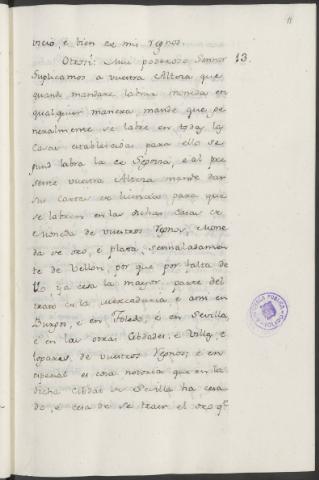 11
vicio, é bien de mis Regnos.
Otrosi: Mui poderoso Sennor 13.
Suplicamos á vuestra Alteza que
quando mandare labrar moneda en
qualquier manera, mande que ge-
neralmente se labre en todas las
Casas establecidas para ello se-
gund labra la de Segovia, é al pre-
sente vuestra Alteza mande dar
sus cartas de licencias para que
se labren en las dichas Casas de
Moneda de vuestros Regnos, Mone-
da de oro, é plata, sennaladamen-
te de Vellon, por que por falta de
llo, ya cesa la mayor parte del
trato en la Mercaduria, é assi en
Burgos, é en Toledo, é en Sevilla,
é en las otras Cibdades, é Villas, é
logares, de vuestros Regnos; é en
especial es cosa notoria que en la
dicha Cibdat de Sevilla ha cesa-
do, é cesa de se traer el oro qe.
BIBLIOTECA PUBLICA
TOLEDO